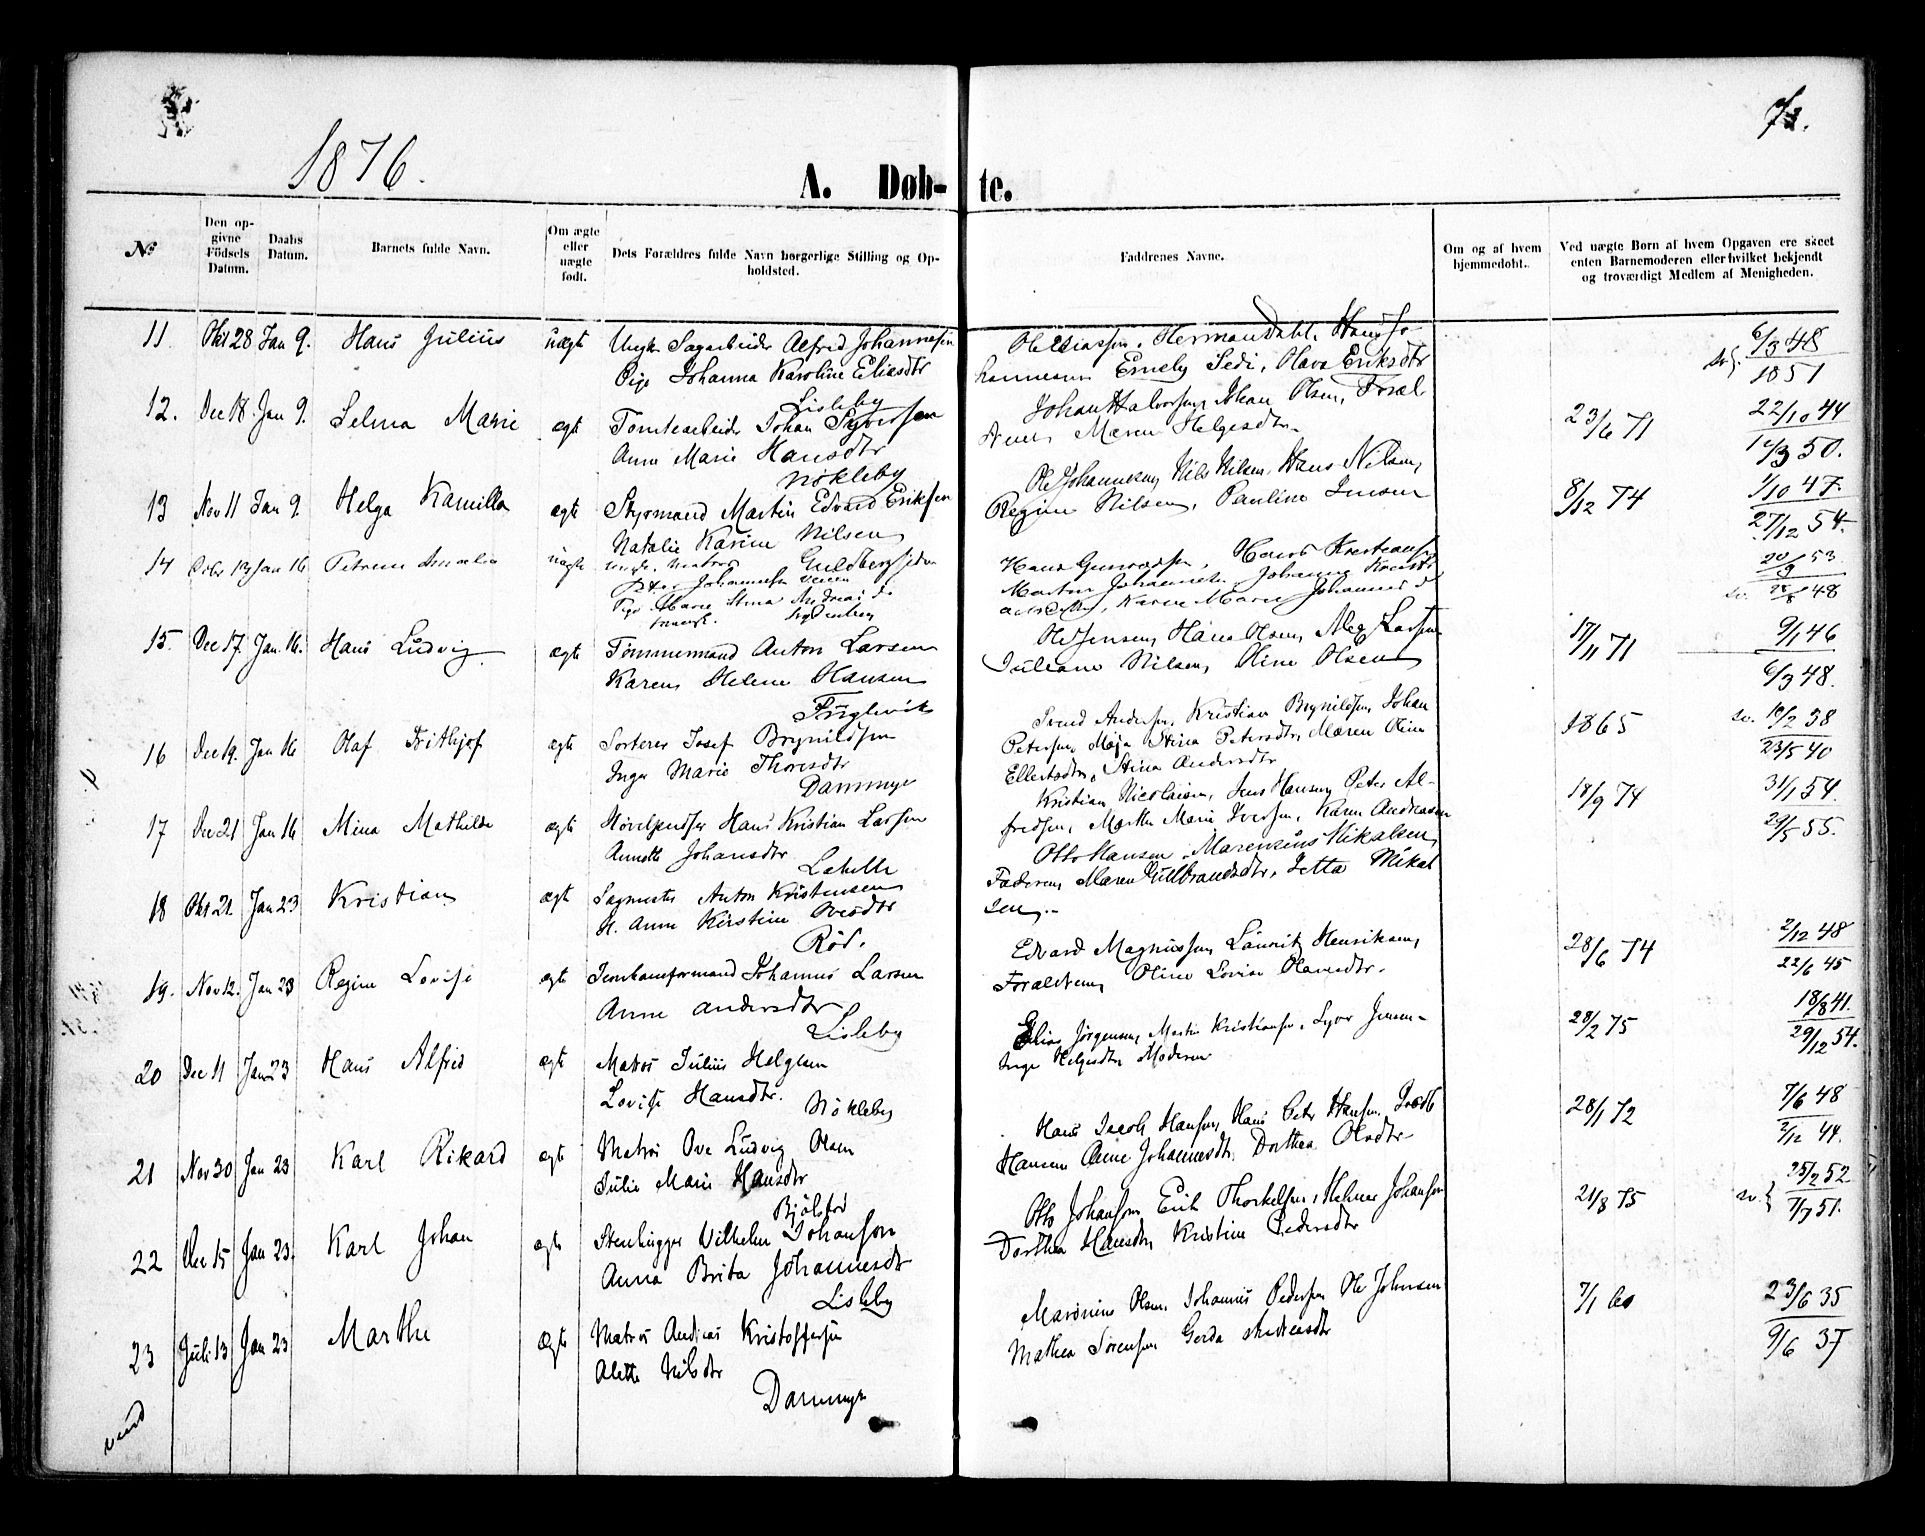 1876.
A. Døb-
te.
No
Den op-
givne
Födsels
Datum.
Daabs
Datum.
Barnets fulde Navn.
Om ægte
eller
uægte
født.
Dets Forældres fulde Navn borgerlige Stilling og Op-
holdsted.
Faddrenes Navne.
Om og af hvem
hjemmedøbt.
Ved uægte Børn af hvem Opgaven ere skeet
enten Barnemoderen eller hvilket bekjendt
og troværdigt Medlem af Menigheden.
11. Okt 28 Jan 9. Hans Julius uægte Ungk. Sagarbeider Alfred Johannesen
Pige Johanna Karoline Eliasdtr
Lisleby
Ole Eliassen, Herman Dahl, Hans Jo-
hannesen Emely Sedi, Olava Eriksdtr
6/3 48
1851
12. Dec 18. Jan 9. Selma Marie ægte Tomtearbeider Johan Syversen
Anne Marie Hansdtr
Nökleby
Johan Halvorsen, Johan Olsen, Foræl-
drene, Maren Helgesdtr.
23/6 71
22/10 44
12/3 50.
13 Nov 11 Jan 9. Helga Kamilla ægte Styrmand Martin Edvard Eriksen
Natalie Karine Nilsen
Ole Johannesen, Nils Nilsen, Hans Nilsen,
Regine Nilsen, Pauline Jensen
8/12 74
1/10 47.
27/12 54.
14 Octbr 13 Jan 16 Petrine Amalie uægte
Peter Johannesen
Pige Marie Stina Andreasd.
Hans Gunvaldsen, Hans Kristiansen
Karen Marie Johannesd
20/9 53
48
15. Dec 17. Jan. 16. Hans Ludvig ægte Tömmermand Anton Larsen
Karen Helene Hansen
Fuglevik
Ole Jensen, Hans Olsen, Larsen
Juliane Nilsen, Oline Olsen
17/11 71
9/1 46
6/3 48.
16 Dec 19. Jan 16 Olaf Frithjof ægte Sorterer Josef Brynildsen
Inger Marie Thoresdtr
Dammyr
Svend Andersen, Kristian Brynildsen, Johan
Petersen, Maja Stina Petersdtr, Maren Oline
Ellertsdtr, Stina Andersdtr
1865
sv. 10/2 38
23/5 40
17 Dec 21 Jan 16 Mina Mathilde ægte Hans Kristian Larsen
Annette Johansdtr
Labelle
Kristian Nicolaisen, Jens Hansen, Peter Al-
fredsen, Marthe Marie Iversen, Karen Andreasen
18/9 74
31/1 54.
29/5 55.
18 Okt 21. Jan 23 Kristian ægte Sagmester Anton Kristensen
H. Anne Kirstine Ovesdtr
Röd.
Otto Hansen, Marensius Mikalsen,
Faderen, Maren Gulbrandsdtr, Jetta Mikal-
sen.
28/6 74
2/12 48
22/6 45
19. Nov 12. Jan 23 Regine Lovise ægte Johannes Larsen
Anne Andersdtr
Lisleby
Edvard Magnussen, Lauritz Henriksen,
Forældrene, Oline Lovise Olavesdtr.
28/2 75
18/8 41.
29/12 54.
20 Dec 11 Jan 23 Hans Alfred ægte Matros Julius Helgesen
Lovise Hansdtr.
Nökleby
Elias Jørgensen, Martin Kristiansen, Syver Jensen
Inge Helgesdtr, Moderen
28/1 72
7/6 48
2/12 44.
21 Nov 30 Jan 23 Karl Rikard ægte Matros Ove Ludvig Olsen
Julie Marie Hansdtr
Hans Jacob Hansen, Hans Peter Hansen,
Hansen Anne Johannesdtr, Dorthea Olsdtr
21/8 75
sv. 25/2 52
7/7 51.
22 Dec 15 Jan 23. Karl Johan ægte Stenhugger Vilhelm Johanson
Anna Brita Johannesdtr
Lisleby
Otto Johansen, Erik Thorkelsen, Helmer Johansen
Dorthea Hansdtr, Kristine Pedersdtr
23 Juli 13 Jan 23 Marthe ægte Matros Andreas Kristoffersen
Alette Nilsdtr
Dammyr
Maronius Olsen, Johannes Pedersen, Ole Johnsen
Mathea Sörensen Gerda Andreasdtr
7/1 60
23/6 35
9/6 37
vend